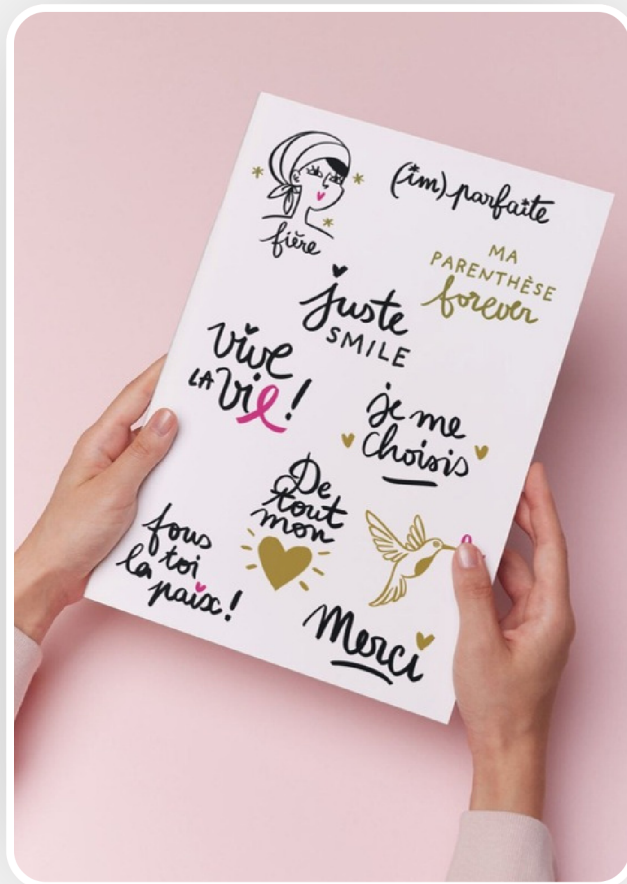 fière
(im)parfaite
MA
PARENTHÈSE
forever
juste
SMILE
vive
LA vie!
je me
choisis
De
tout
mon
fous
toi
la paix!
Merci